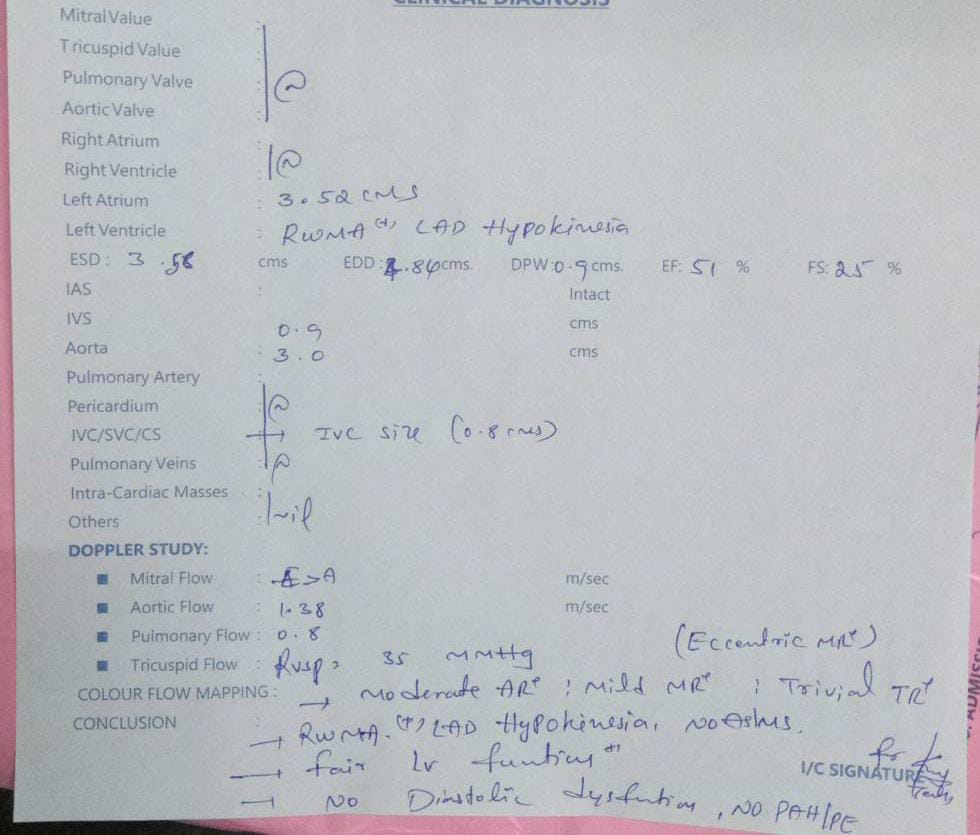 CLINICAL DIAGNOSIS
Mitral Value :
Tricuspid Value :
Pulmonary Valve : N
Aortic Valve :
Right Atrium :
Right Ventricle : N
Left Atrium : 3.52 cms
Left Ventricle : RWMA (+) LAD Hypokinesia
ESD : 3.58 cms EDD : 4.86 cms. DPW : 0.9 cms. EF : 51 % FS : 25 %
IAS : Intact
IVS 0.9 cms
Aorta : 3.0 cms
Pulmonary Artery :
Pericardium : N
IVC/SVC/CS → IVC size (0.8 cms)
Pulmonary Veins : N
Intra-Cardiac Masses :
Others : Nil
DOPPLER STUDY:
Mitral Flow : E>A m/sec
Aortic Flow : 1.38 m/sec
Pulmonary Flow : 0.8
(Eccentric MR+)
Tricuspid Flow : RVSP = 35 MMHg
COLOUR FLOW MAPPING : → Moderate AR+ ; Mild MR+ ; Trivial TR+
CONCLUSION : → RWMA (+) LAD Hypokinesia,
→ fair LV funtion (+)
I/C SIGNATURE
→ NO Diastolic dysfuntion, NO PAH/PE